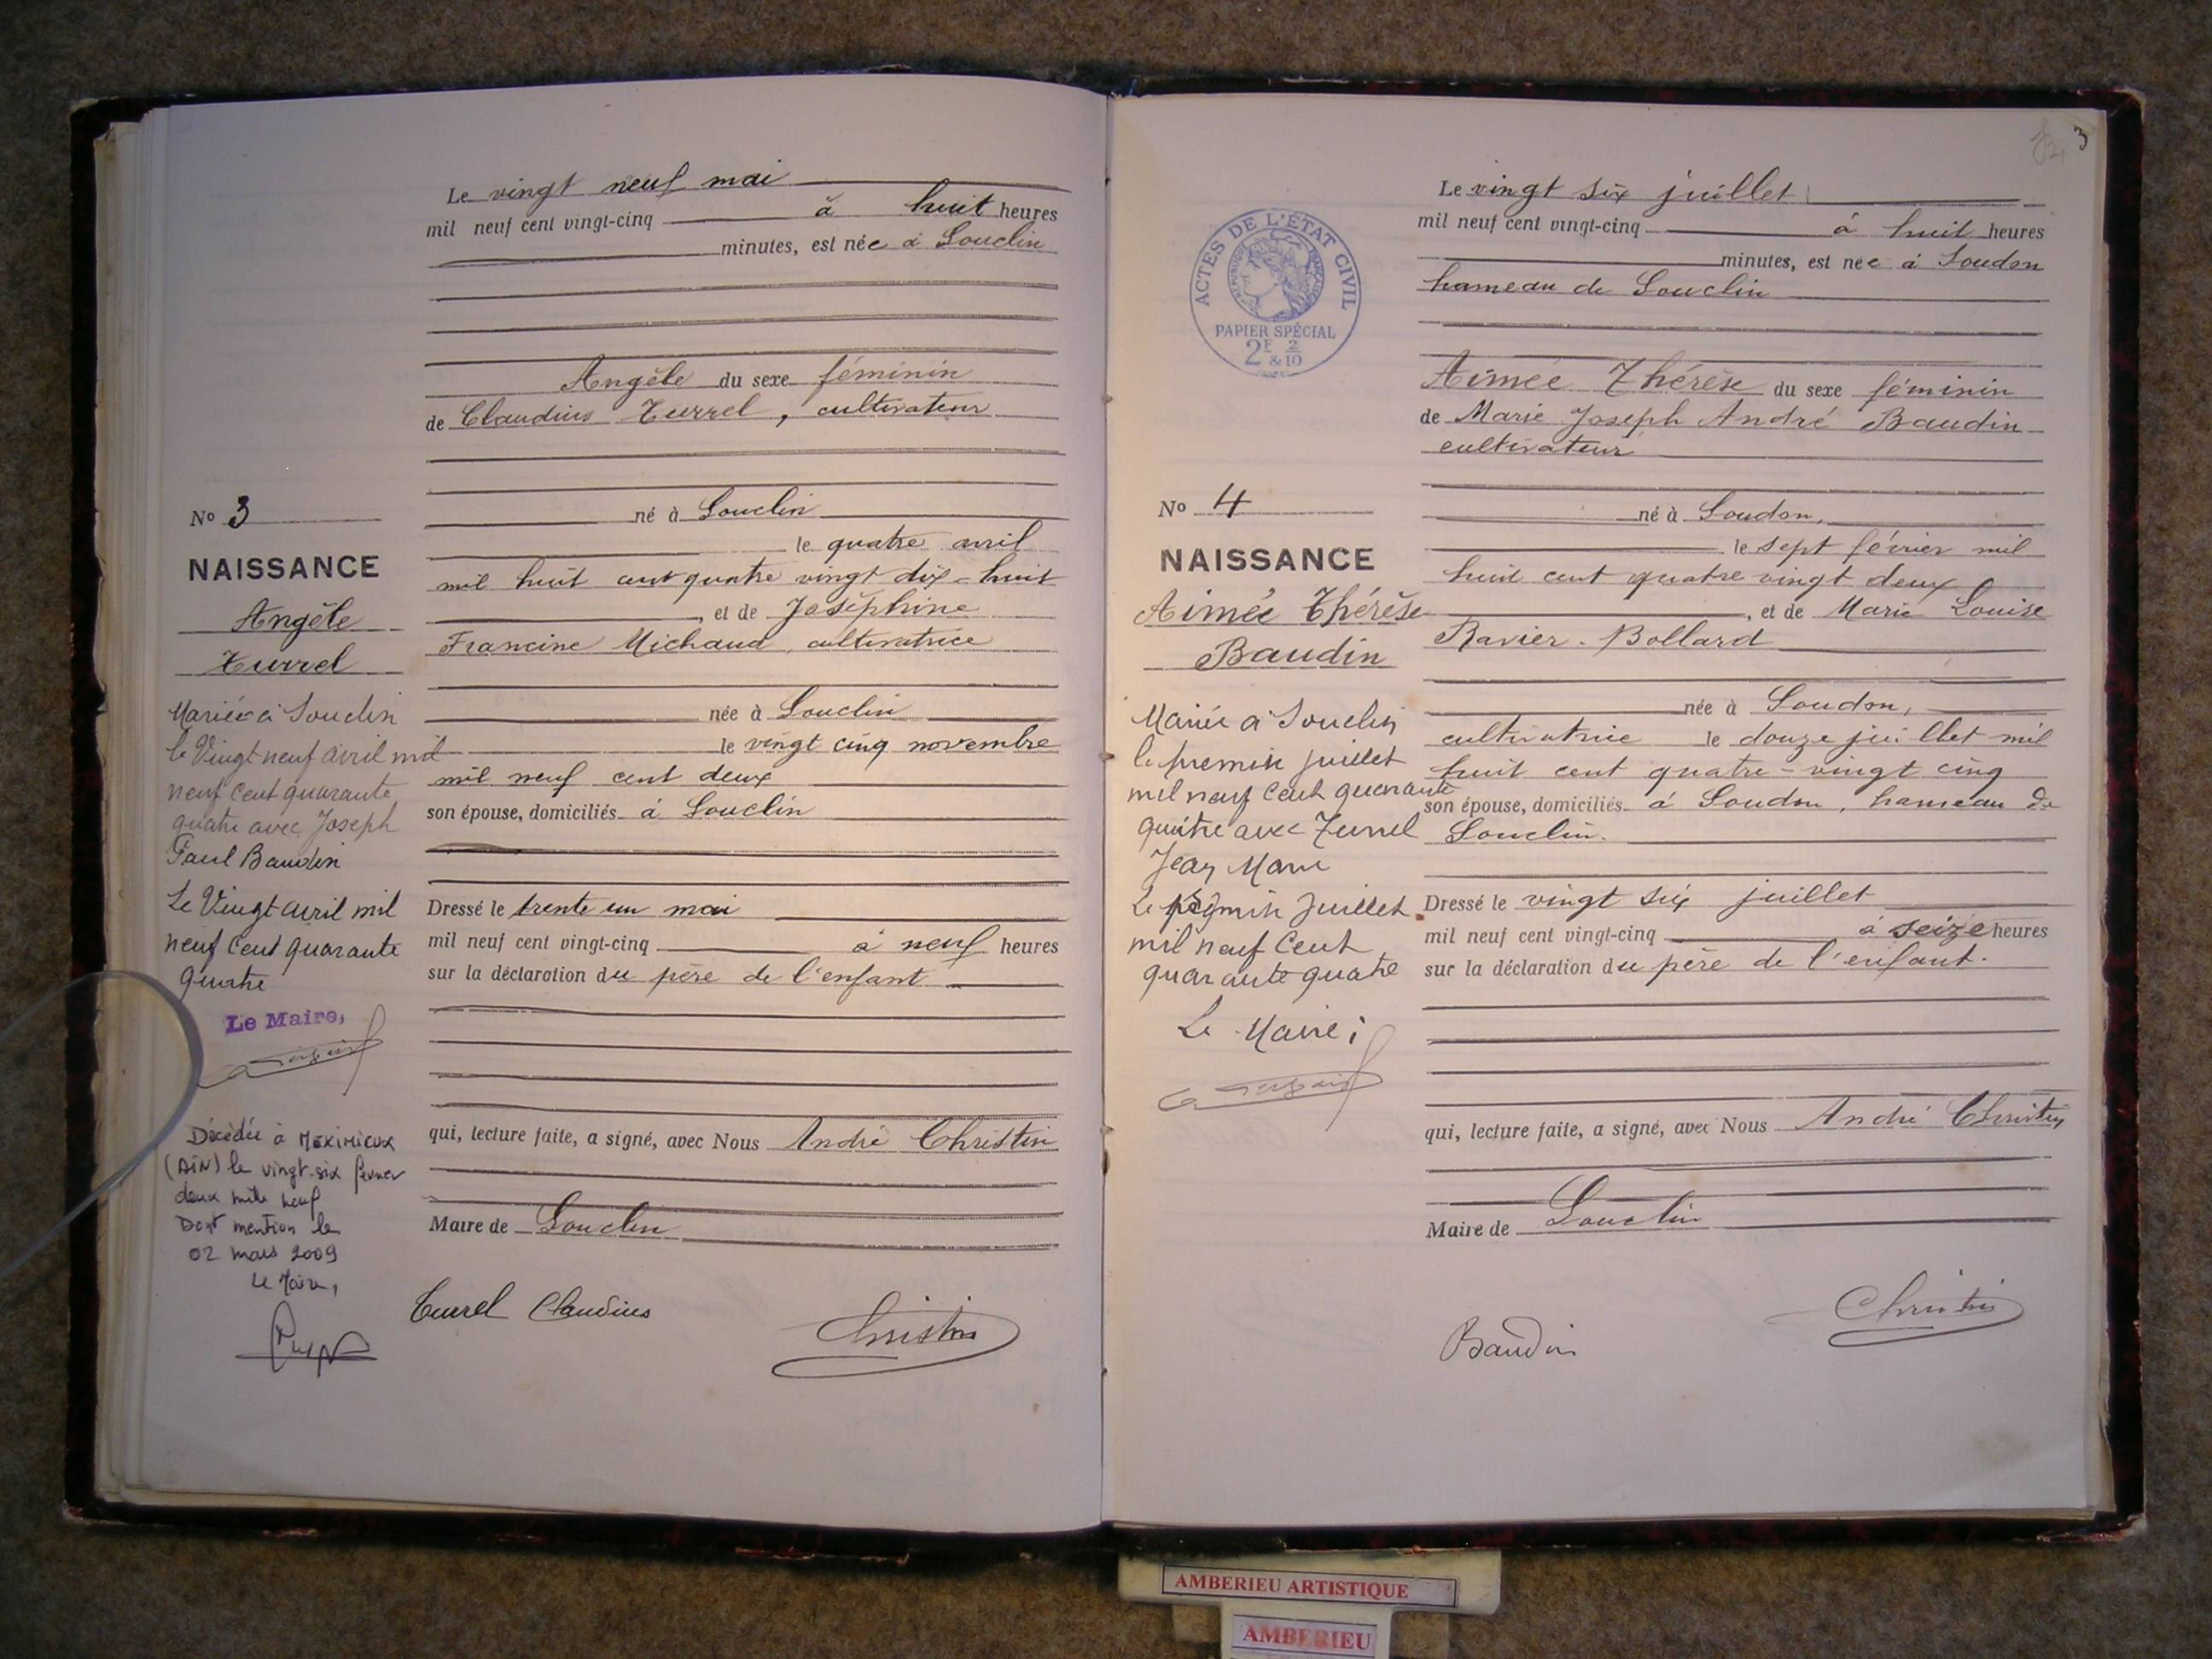 Le vingt neuf mai
mil neuf cent vingt-cinq à huit heures
minutes, est née à Souclin
Angèle du sexe féminin
de Claudius Turrel, cultivateur
né à Souclin
le quatre avril
mil huit cent quatre vingt dix-huit
, et de Joséphine
Francine Michaud, cultivatrice
née à Souclin
le vingt cinq novembre
mil neuf cent deux
son épouse, domiciliés à Souclin
Dressé le trente un mai
mil neuf cent vingt-cinq à neuf heures
sur la déclaration du père de l'enfant
qui, lecture faite, a signé, avec Nous André Christin
Maire de Souclin
Turrel Claudius
Christin
No 3
NAISSANCE
Angèle
Turrel
Mariée à Souclin
le Vingt neuf avril mil
neuf cent quarante
quatre avec Joseph
Paul Baudin
Le Vingt avril mil
neuf cent quarante
quatre
Le Maire,
Décédée à Meximieux
(AIN) le vingt-six février
deux mille neuf
Dont mention le
02 mars 2009
Le Maire,
3
Le vingt six juillet
mil neuf cent vingt-cinq à huit heures
minutes, est née à Soudon
hameau de Souclin
Aimée Thérèse du sexe féminin
de Marie Joseph André Baudin
cultivateur
né à Soudon,
le sept février mil
huit cent quatre vingt deux
, et de Marie Louise
Ravier-Bollard
née à Soudon,
cultivatrice le douze juillet mil
huit cent quatre-vingt cinq
son épouse, domiciliés à Soudon, hameau de
Souclin.
Dressé le vingt six juillet
mil neuf cent vingt-cinq à seize heures
sur la déclaration du père de l'enfant.
qui, lecture faite, a signé, avec Nous André Christin
Maire de Souclin
Baudin
Christin
ACTES DE L'ÉTAT CIVIL
RÉPUBLIQUE FRANÇAISE
PAPIER SPÉCIAL
2E & 2/10
No 4
NAISSANCE
Aimée Thérèse
Baudin
Mariée à Souclin
le premier juillet
mil neuf cent quarante
quatre avec Turrel
Jean Marie
Le premier Juillet
mil neuf cent
quarante quatre
Le Maire;
AMBERIEU ARTISTIQUE
AMBERIEU